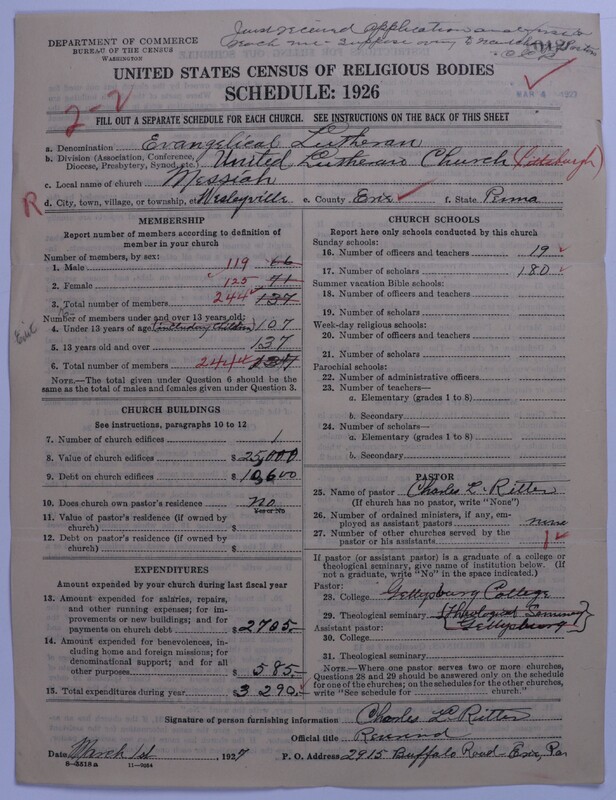 Just received application
DEPARTMENT OF COMMERCE
BUREAU OF THE CENSUS
WASHINGTON
MAR 4 1927
UNITED STATES CENSUS OF RELIGIOUS BODIES
SCHEDULE: 1926
2-2
FILL OUT A SEPARATE SCHEDULE FOR EACH CHURCH. SEE INSTRUCTIONS ON THE BACK OF THIS SHEET
a. Denomination Evangelical Lutheran
b. Division (Association, Conference, Diocese, Presbytery, Synod, etc.) United Lutheran Church (Pittsburgh)
c. Local name of church Messiah
R d. City, town, village, or township, etc. Wesleyville e. County Erie f. State Penna
MEMBERSHIP
Report number of members according to definition of
member in your church
Number of members, by sex:
1. Male 119 66
2. Female 125 71
3. Total number of members 244 137
Number of members under and over 13 years old:
4. Under 13 years of age (including children) 107
5. 13 years old and over 137
6. Total number of members 244 137
NOTE.—The total given under Question 6 should be
the same as the total of males and females given under Question 3.
CHURCH BUILDINGS
See instructions, paragraphs 10 to 12
7. Number of church edifices 1
8. Value of church edifices $ 25,000
9. Debt on church edifices $ 10,600
10. Does church own pastor's residence? No
Yes or No
11. Value of pastor's residence (if owned by
church) $
12. Debt on pastor's residence (if owned by
church) $
EXPENDITURES
Amount expended by your church during last fiscal year
13. Amount expended for salaries, repairs,
and other running expenses; for im-
provements or new buildings; and for
payments on church debt $ 2705.
14. Amount expended for benevolences,
including home and foreign missions; for
denominational support; and for all
other purposes $ 585.
15. Total expenditures during year $ 3290.
CHURCH SCHOOLS
Report here only schools conducted by this church
Sunday schools:
16. Number of officers and teachers 19
17. Number of scholars 180
Summer vacation Bible schools:
18. Number of officers and teachers
19. Number of scholars
Week-day religious schools:
20. Number of officers and teachers
21. Number of scholars
Parochial schools:
22. Number of administrative officers
23. Number of teachers—
a. Elementary (grades 1 to 8)
b. Secondary
24. Number of scholars—
a. Elementary (grades 1 to 8)
b. Secondary
PASTOR
25. Name of pastor Charles L. Ritter
(If church has no pastor, write "None")
26. Number of ordained ministers, if any, em-
ployed as assistant pastors none
27. Number of other churches served by the
pastor or his assistants 1
If pastor (or assistant pastor) is a graduate of a college or
theological seminary, give name of institution below. (If
not a graduate, write "No" in the space indicated.)
Pastor:
28. College Gettysburg College
29. Theological seminary (Theological Seminary
Assistant pastor: Gettysburg)
30. College
31. Theological seminary
NOTE.—Where one pastor serves two or more churches,
Questions 28 and 29 should be answered only on the schedule
for one of the churches; on the schedules for the other churches,
write "See schedule for church."
Signature of person furnishing information Charles L. Ritter
Official title Reverend
Date March 1st, 1927 P. O. Address 2915 Buffalo Road - Erie, Pa
8-3518a 11-9084